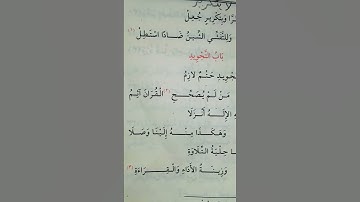 رًا وَبِتَكْرِيرٍ جُعِلْ
وَلِلتَّفَشِّي الشِّينُ ضَادًا اسْتَطِلْ
بَابُ التَّجْوِيدِ
جْوِيدِ حَتْمٌ لَازِمُ
مَنْ لَمْ يُصَحِّحِ الْقُرْآنَ آثِمُ
هِ الْإِلَهُ أَنْزَلَا
وَهَكَذَا مِنْهُ إِلَيْنَا وَصَلَا
ا حِلْيَةُ التِّلَاوَةِ
وَزِينَةُ الْأَدَاءِ وَالْقِرَاءَةِ